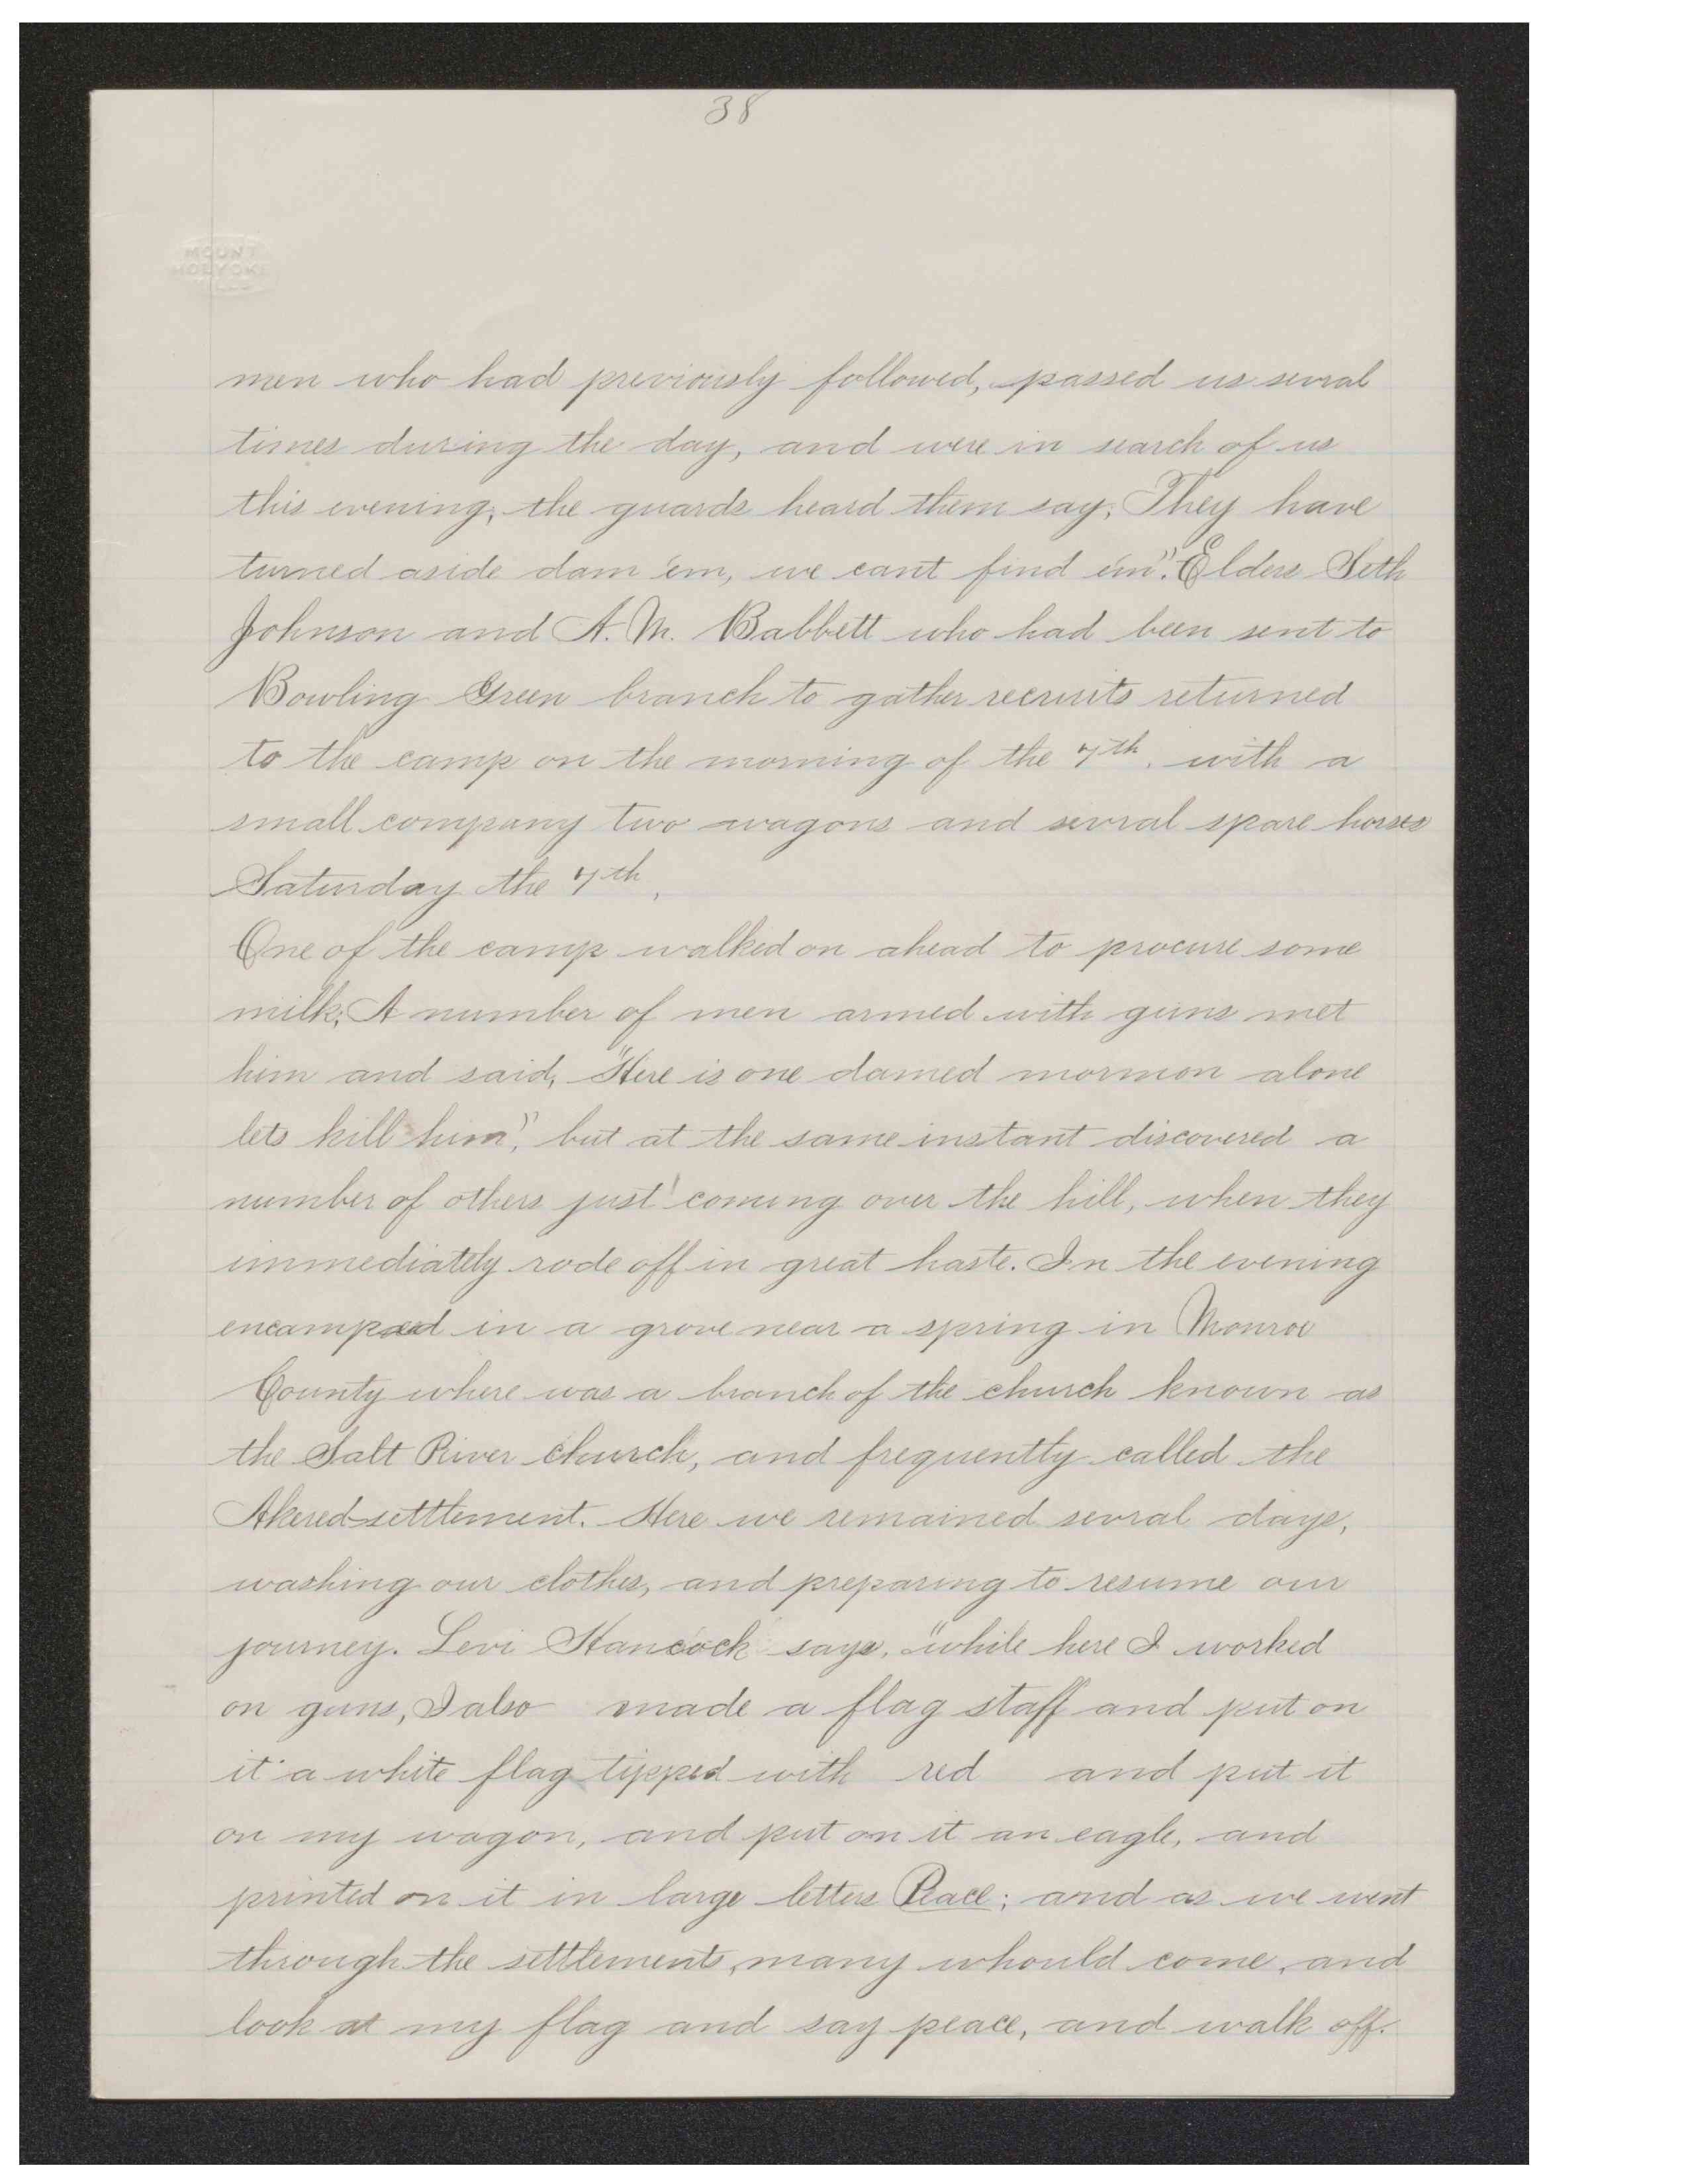 38
MOUNT
HOLYOKE
men who had previously followed, passed us sevral
times during the day, and were in search of us
this evening, the guards heard them say, They have
turned aside dam 'em, we cant find em". Elders Seth
Johnson and A. M. Babbett who had been sent to
Bowling Green branch to gather recruits returned
to the camp on the morning of the 7th. with a
small company two wagons and sevral spare horses
Saturday the 7th,
One of the camp walked on ahead to procure some
milk; A number of men armed with guns met
him and said, "Here is one damed mormon alone
lets kill him", but at the same instant discovered a
number of others just coming over the hill, when they
immediately rode off in great haste. In the evening
encamped in a grove near a spring in Monroe
County where was a branch of the church known as
the Salt River church, and frequently called the
Akered settlement. Here we remained sevral days,
washing our clothes, and preparing to resume our
journey. Levi Hancock says, "while here I worked
on guns, I also made a flag staff and put on
it a white flag tipped with red and put it
on my wagon, and put on it an eagle, and
printed on it in large letters Peace; and as we went
through the settlements, many whould come, and
look at my flag and say peace, and walk off.